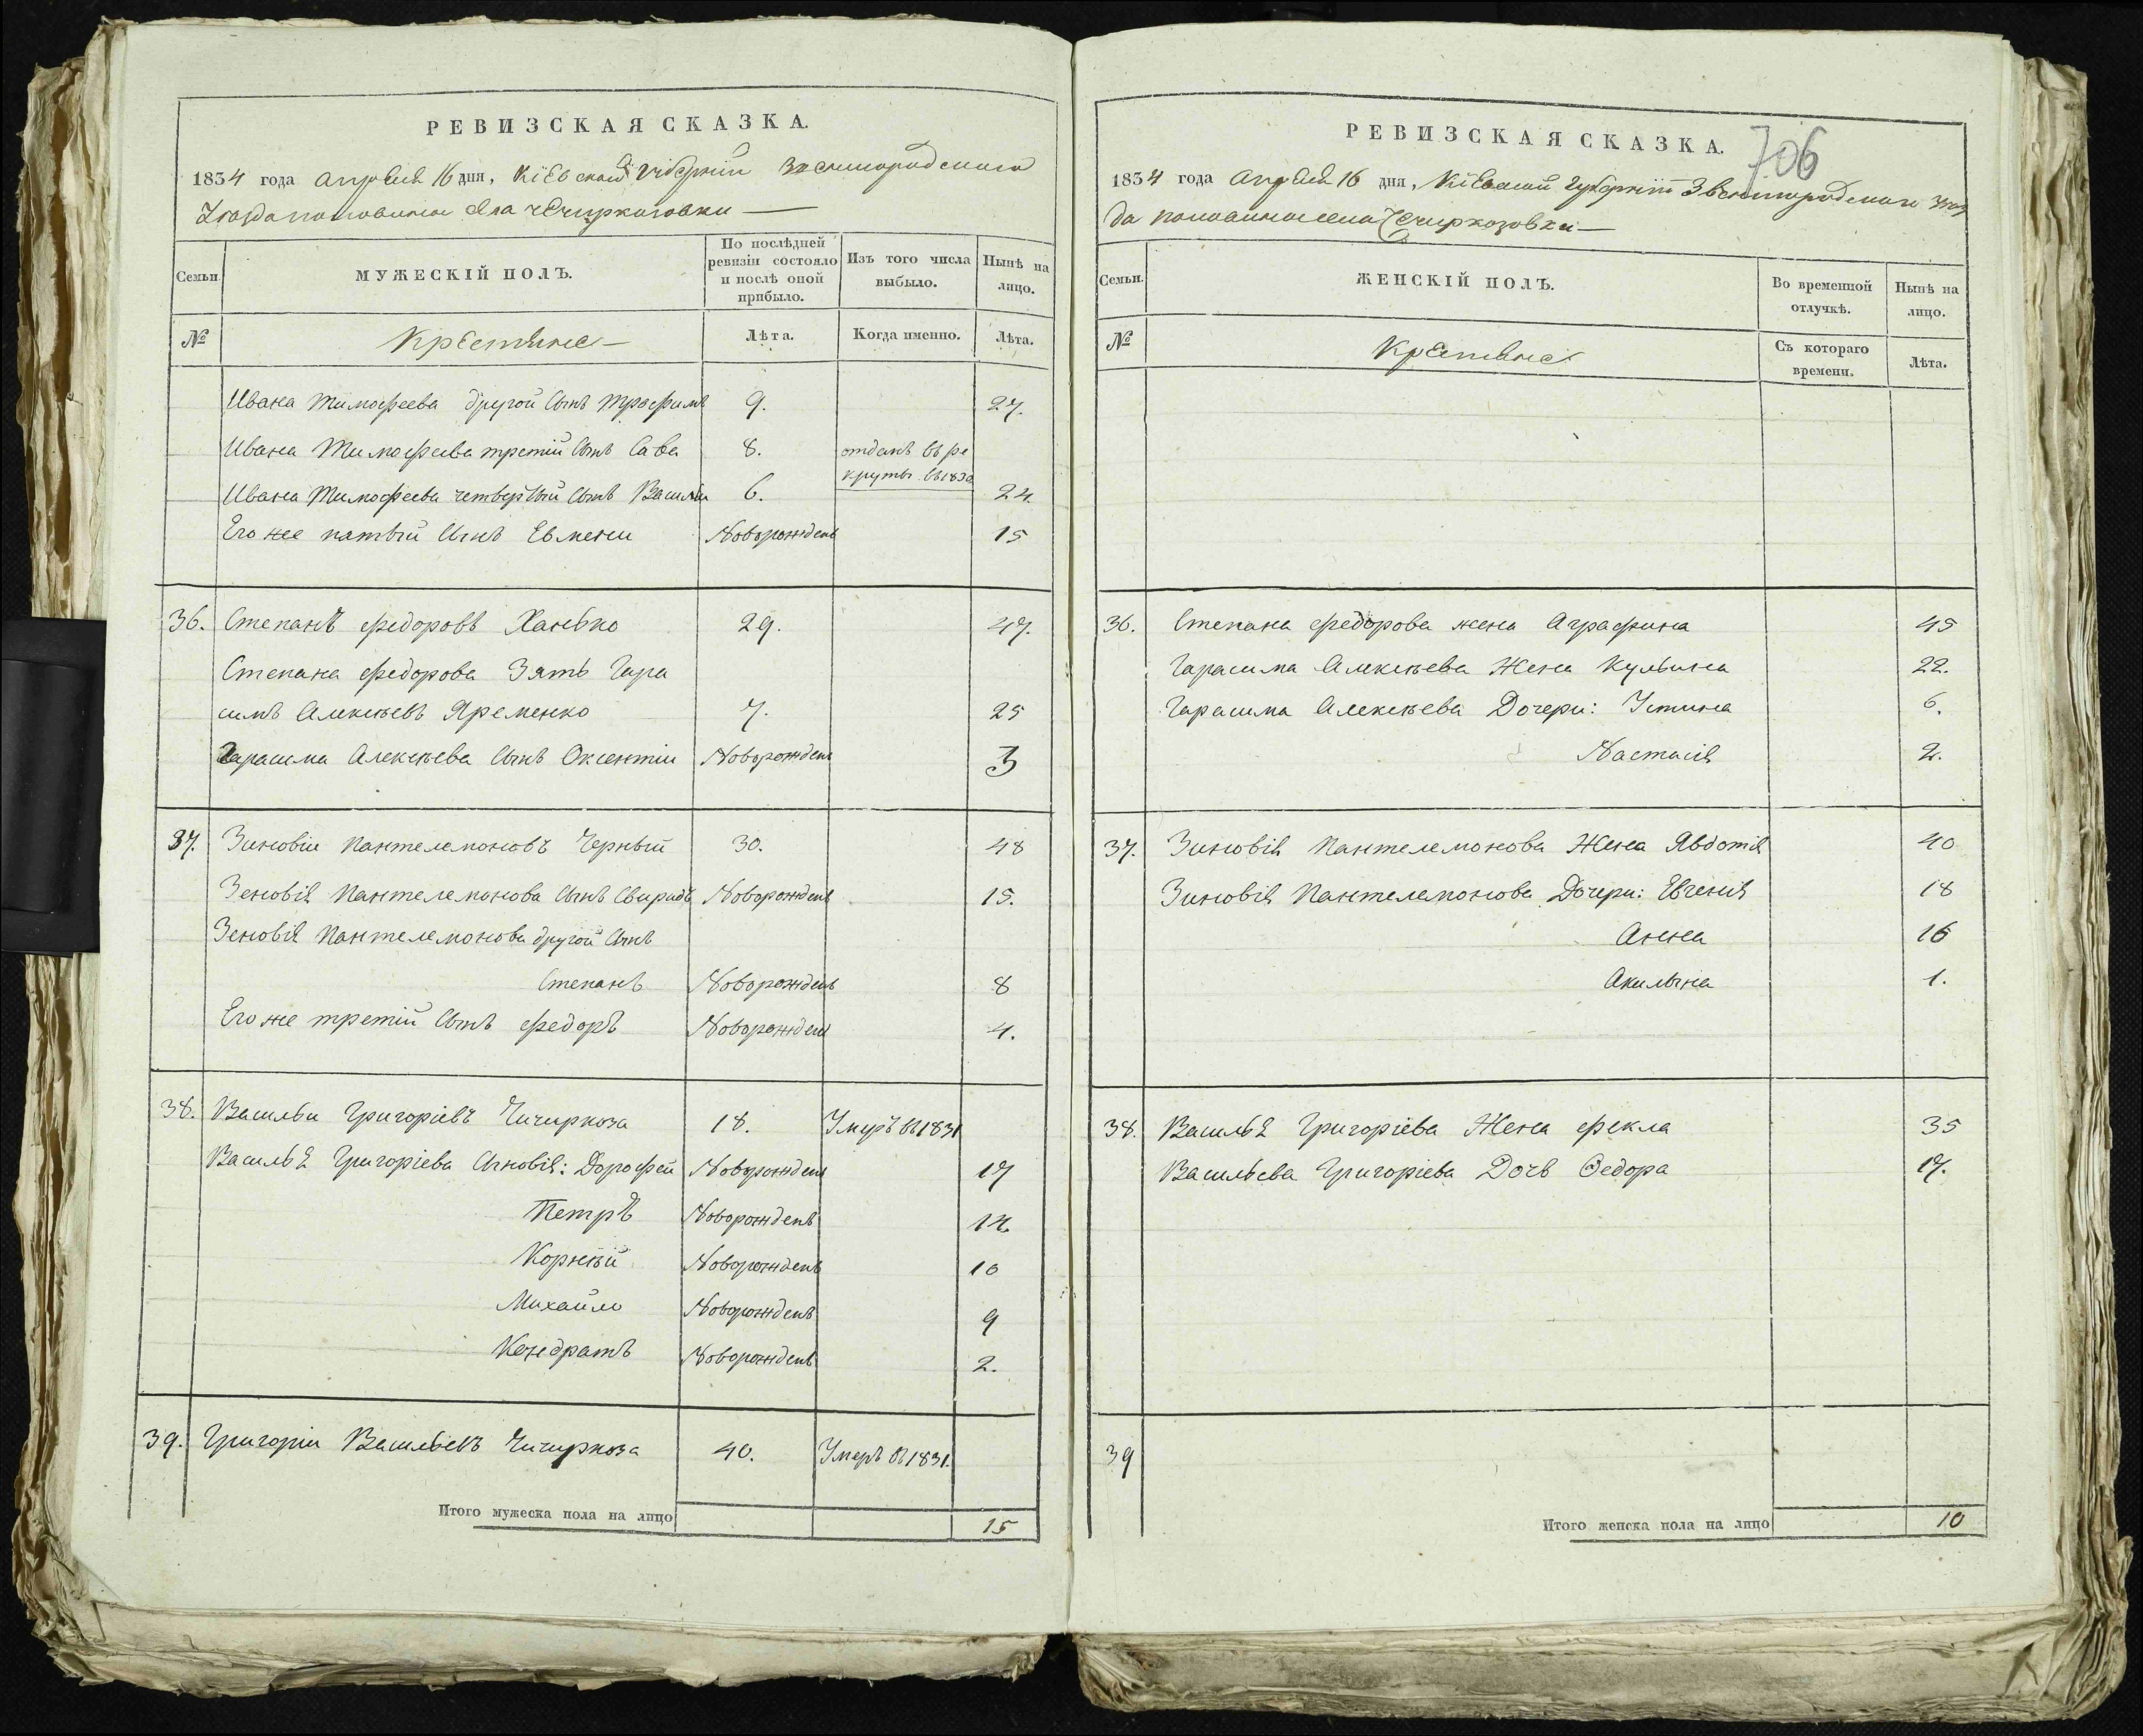 РЕВИЗСКАЯ СКАЗКА.
1834 года Апрѣля 16 дня, Кіевской Губерніи Звенигородского
Уезда половинной села Чичиркозовки
Семьи.
МУЖЕСКІЙ ПОЛЪ.
По послѣдней
ревизіи состояло
и послѣ оной
прибыло.
Изъ того числа
выбыло.
Нынѣ на
лицо.
№
Крестьяне
Лѣта.
Когда именно.
Лѣта.
Ивана Тимофеева другой Сынъ Трофимъ 9. 27.
Ивана Тимофеева третій Сынъ Сава 8. отданъ въ ре
круты въ 1830
Ивана Тимофеева четвертый Сынъ Василіи 6. 24.
Его же пятый Сынъ Евмени Новорожденъ 15
36. Степанъ Федоровъ Ханько 29. 47.
Степана Федорова Зять Гара
симъ Алексѣевъ Яременко 7. 25
Гарасима Алексѣева Сынъ Оксентіи Новорожденъ 3
37. Зиновіи Пантелемоновъ Черный 30. 48
Зеновія Пантелемонова Сынъ Свиридъ Новорожденъ 15.
Зеновія Пантелемонова другой Сынъ
Степанъ Новорожденъ 8
Его же третій Сынъ Федоръ Новорожденъ 4.
38. Васильи Григоріевъ Чичиркоза 18. Умеръ въ 1831
Василья Григоріева Сыновія: Дорофей Новорожденъ 17
Петръ Новорожденъ 12.
Корнѣй Новорожденъ 10
Михайло Новорожденъ 9
Кондратъ Новорожденъ 2.
39. Григоріи Васильевъ Чичиркоза 40. Умеръ въ 1831.
Итого мужеска пола на лицо 15
706
РЕВИЗСКАЯ СКАЗКА.
1834 года Апрѣля 16 дня, Кіевской Губерніи Звенигородского Уез
да половинной села Чичиркозовки
Семьи.
ЖЕНСКІЙ ПОЛЪ.
Во временной
отлучкѣ.
Нынѣ на
лицо.
№
Крестьяне
Съ котораго
времени.
Лѣта.
36. Степана Федорова жена Аграфина 45
Гарасима Алексѣева Жена Кулина 22.
Гарасима Алексѣева Дочери: Устина 6.
Настасія 2.
37. Зиновія Пантелемонова Жена Явдотія 40
Зиновія Пантелемонова Дочери: Евгенія 18
Анна 16
Акилина 1.
38. Василья Григоріева Жена Фекла 35
Васильева Григоріева Дочь Федора 17.
39
Итого женска пола на лицо 10